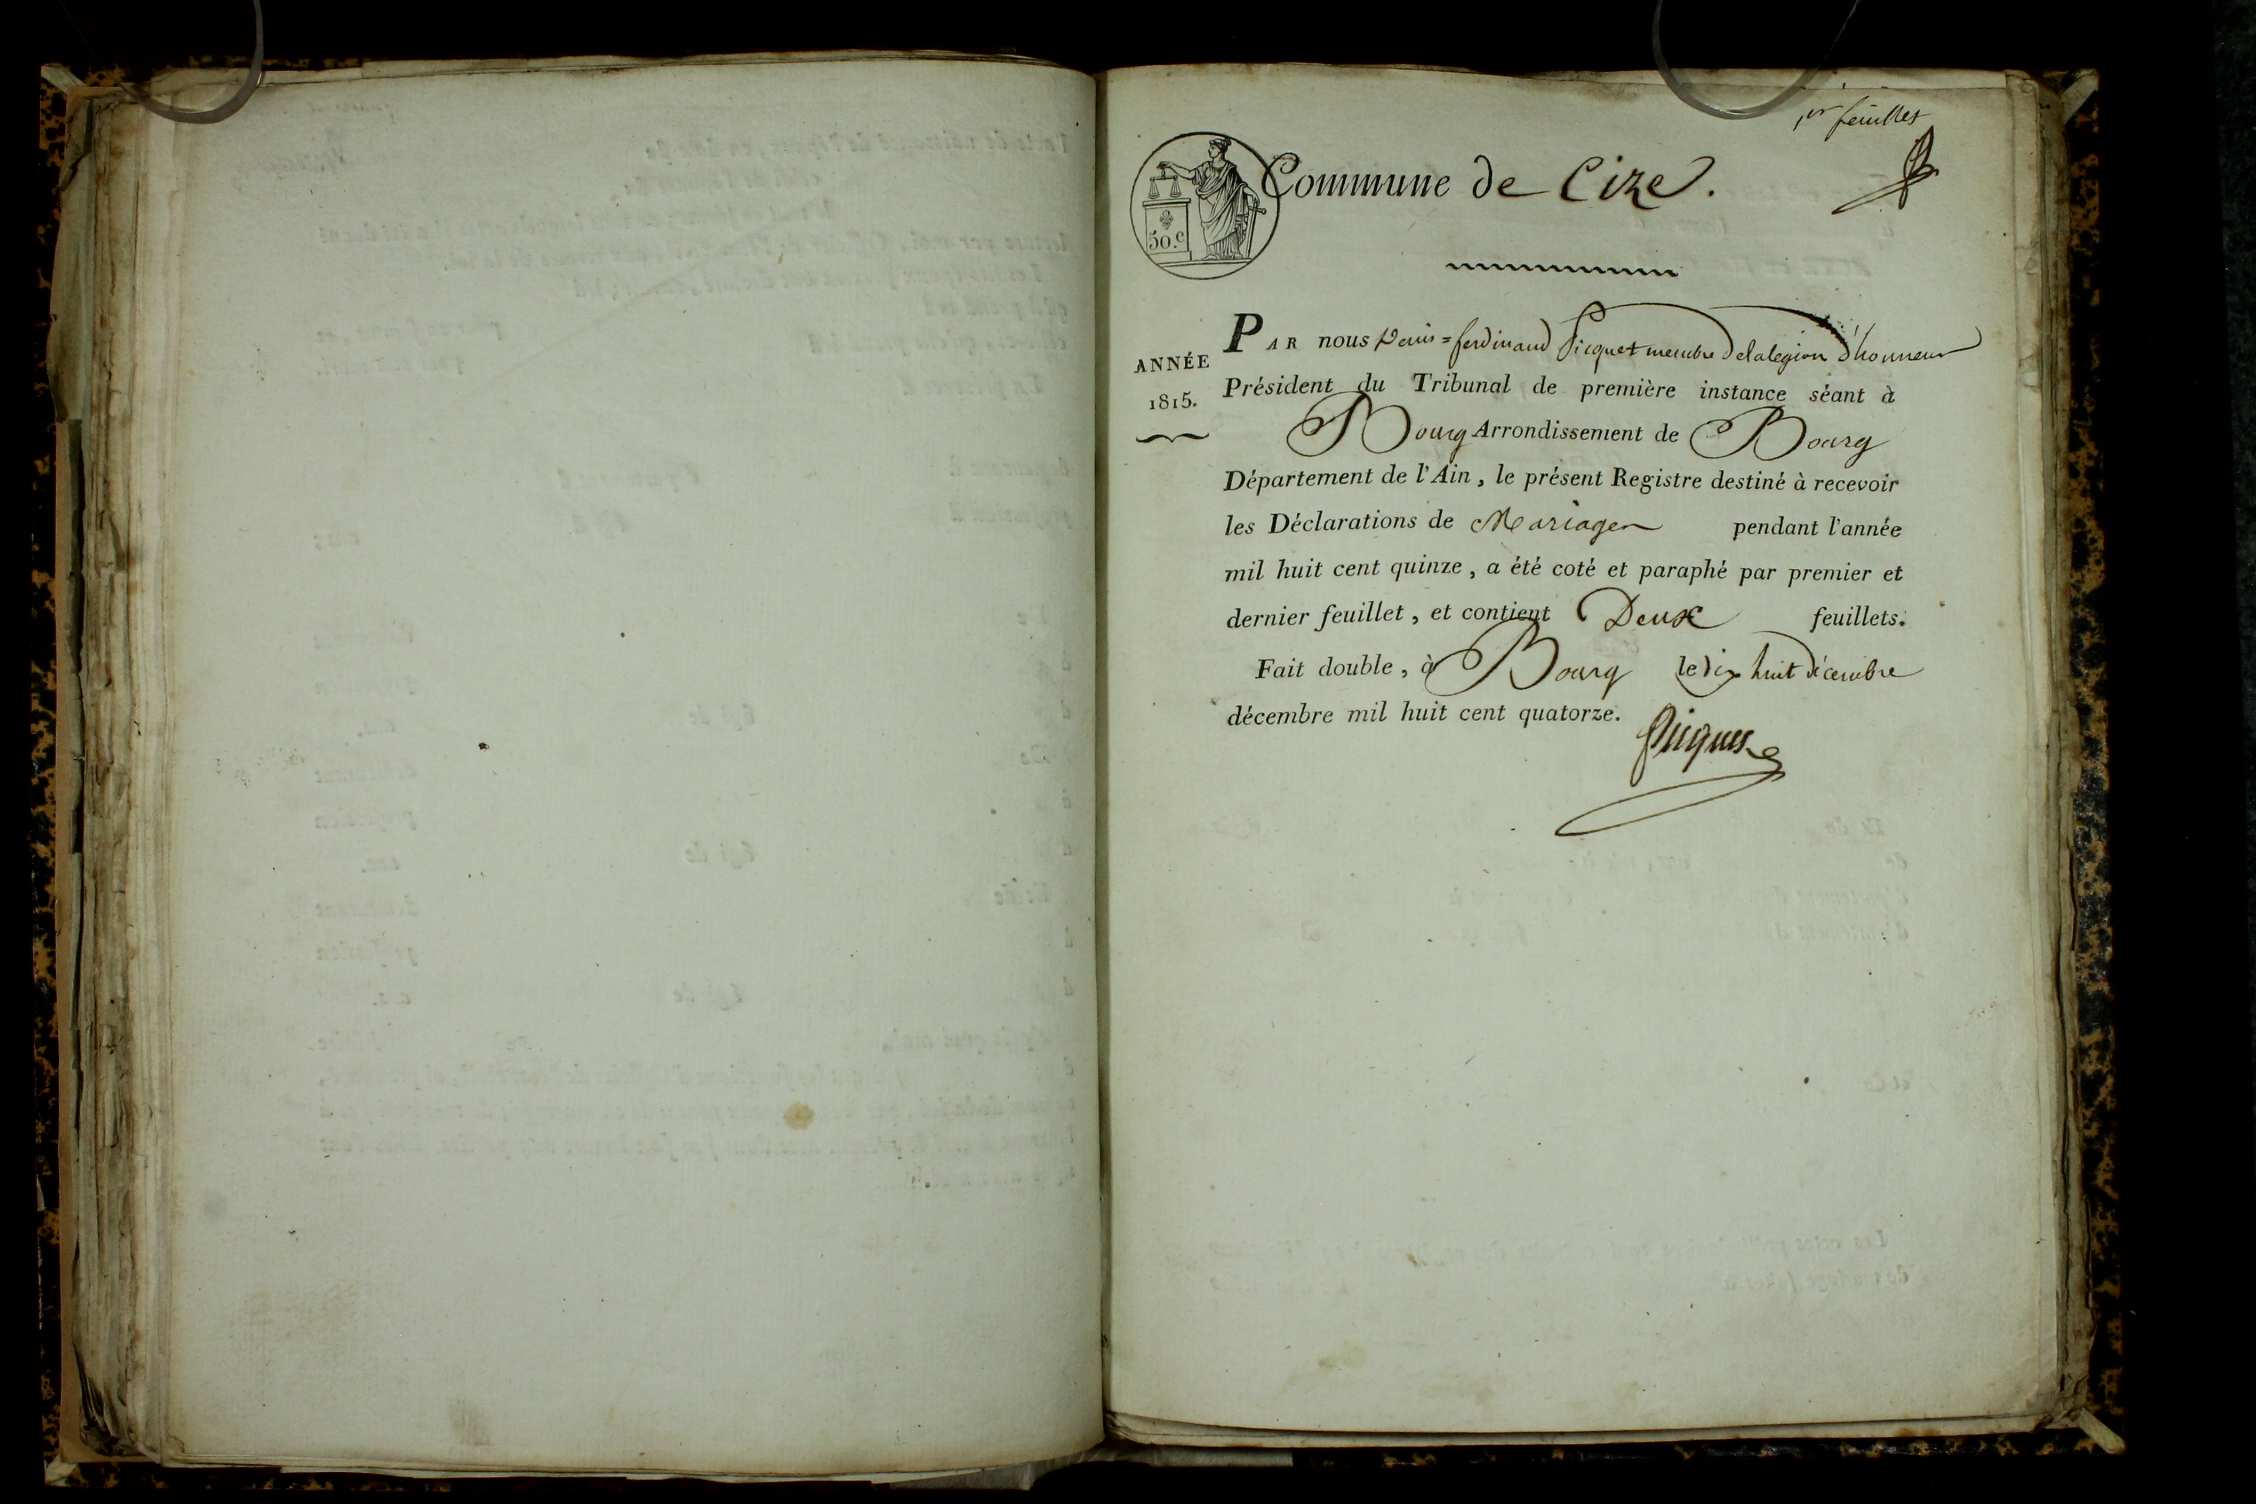 1er feuillet
Commune de Cize.
50.c
PAR nous Denis=ferdinand Picquet membre delalegion d'honneur
ANNÉE
1815.
Président du Tribunal de première instance séant à
Bourg Arrondissement de Bourg
Département de l'Ain, le présent Registre destiné à recevoir
les Déclarations de Mariages pendant l'année
mil huit cent quinze, a été coté et paraphé par premier et
dernier feuillet, et contient Deux feuillets.
Fait double, à Bourg le dix huit décembre
décembre mil huit cent quatorze.
Picquet